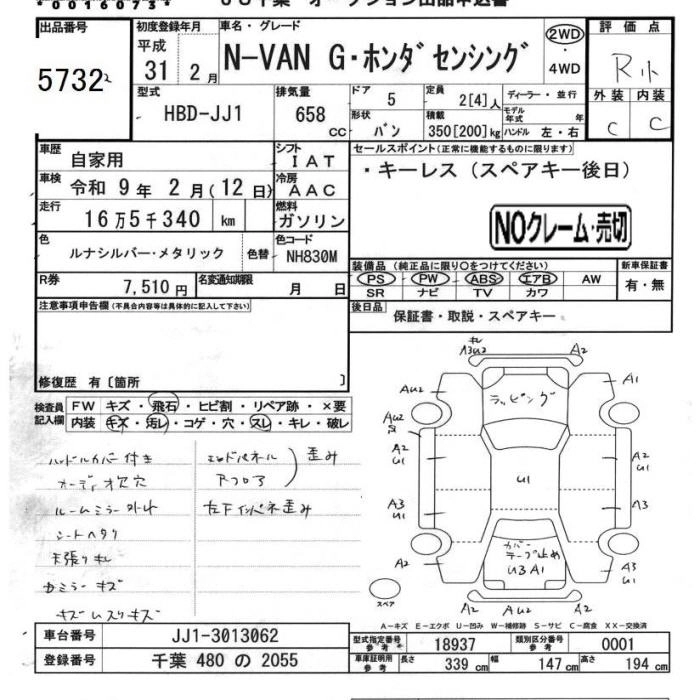 出品番号
5732 2
初度登録年月
平成
31 2月
車名・グレード
N-VAN G・ホンダセンシング
2WD
・
4WD
評価点
R小
外装 内装
C C
型式
HBD-JJ1
排気量
658
CC
ドア
5
定員
2[4]人
形状
バン
積載
350[200]kg
ディーラー・並行
モデル年式 年
ハンドル 左・右
車歴
自家用
シフト
IAT
車検
令和 9年 2月(12日)
冷房
AAC
走行
16万5千340 km
燃料
ガソリン
色
ルナシルバー・メタリック
色替
色コード
NH830M
R券
7,510円
名変通知期限
月 日
セールスポイント(正常に機能するものに限ります)
・キーレス(スペアキー後日)
NOクレーム・売切
装備品(純正品に限り○をつけてください)
PS PW ABS エアB AW
SR ナビ TV カワ
新車保証書
有・無
後日品
保証書・取説・スペアキー
注意事項申告欄(不具合内容等は具体的に記入して下さい)
修復歴 有〔箇所 〕
検査員記入欄
FW キズ・飛石・ヒビ割・リペア跡・×要
内装 キズ・汚レ・コゲ・穴・スレ・キレ・破レ
ハンドルカバー付き
オーディオ欠穴
ルームミラー外れ
シートヘタリ
天張りキレ
キズ
キズ ムスリキズ
エンドパネル
Rフロア
歪み
左下インパネ歪み
A3 U2
A2
AU2
A1
ラッピング
AU2
A2
U1
A2
U1
U1
A3
U1
A3
カバー
テープ止め
U3 A1
A2
A3
U1
A2 AU2 A2
スペア
A―キズ E―エクボ U―凹み W―補修跡 S―サビ C―腐食 XX―交換済
車台番号
JJ1-3013062
登録番号
千葉 480 の 2055
型式指定番号
参考
18937
類別区分番号
参考
0001
車庫証明用
参考
長さ
339 cm
幅
147 cm
高さ
194 cm